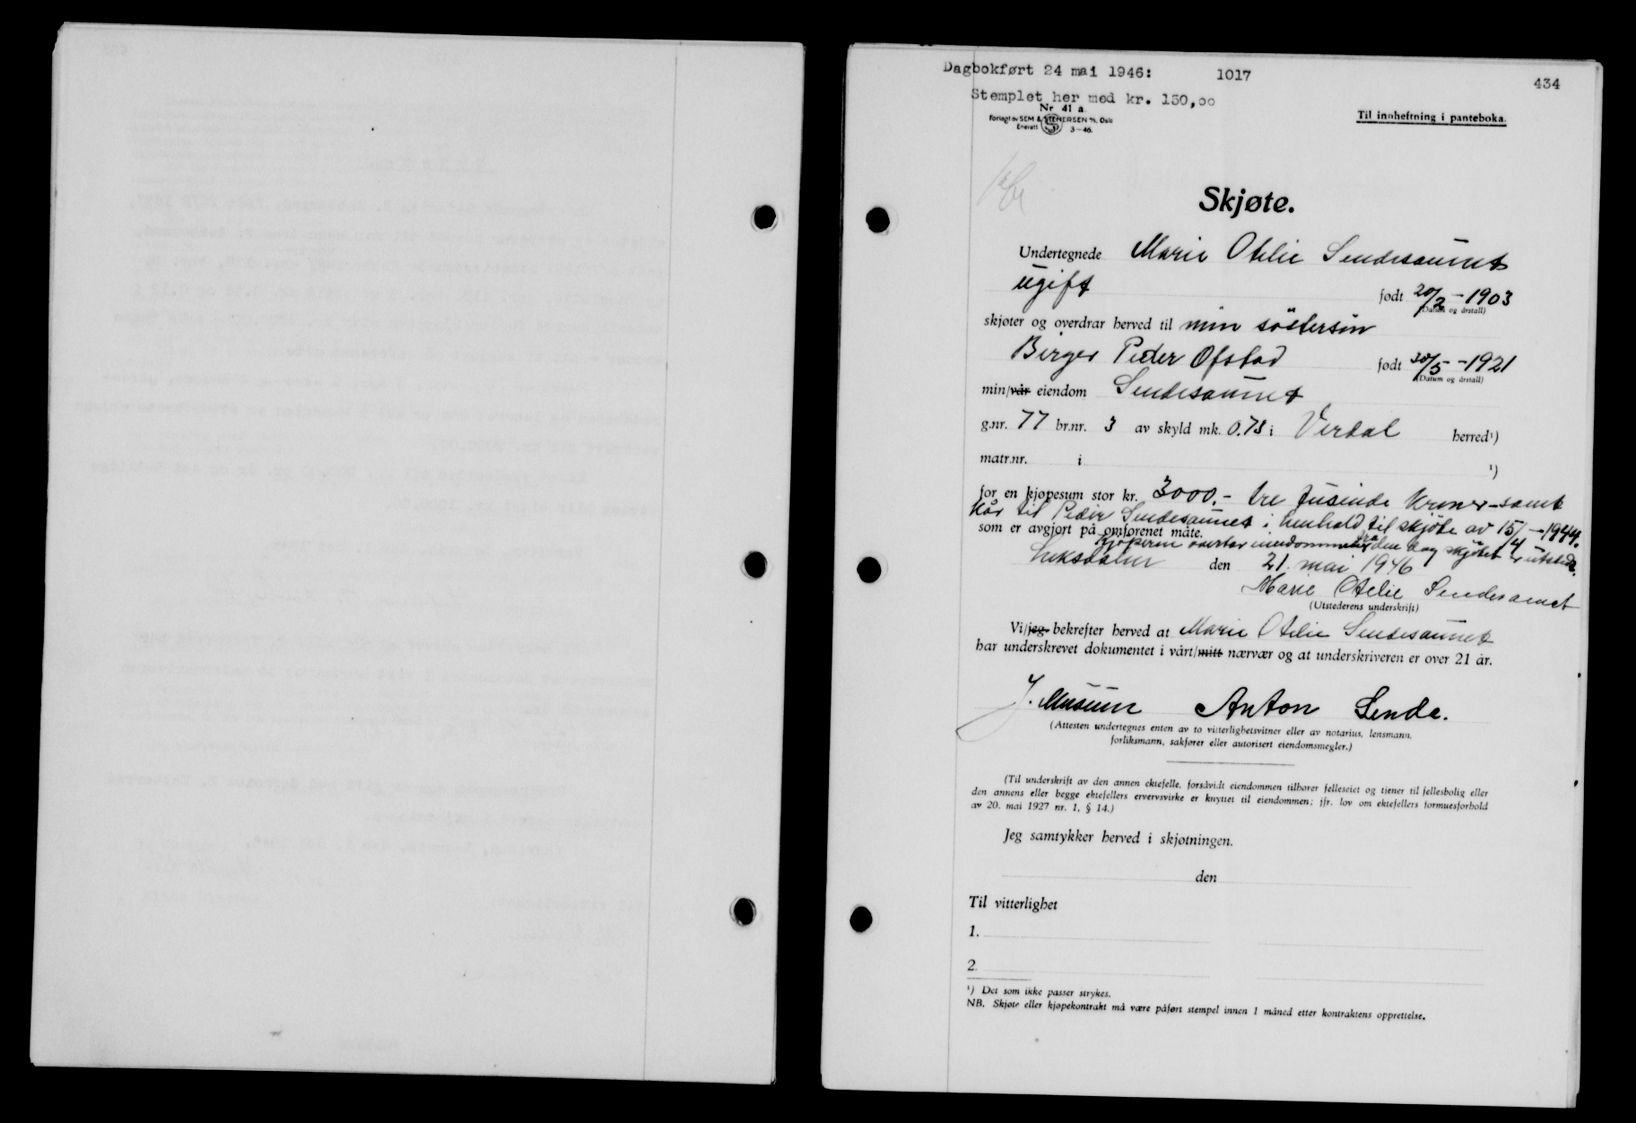 Dagbokført 24 mai 1946: 1017
434
Stemplet her med kr. 150,00
Nr. 41 a
Forlagt av SEM & STENERSEN A/S, Oslo
Enerett 3-46.
Til innheftning i panteboka.
Skjøte.
Undertegnede Marie Otelie Sendesaunet
ugift født 20/2 - 1903
(Datum og årstall)
skjøter og overdrar herved til min søstersøn
Birger Peder Ofstad født 30/5 - 1921
(Datum og årstall)
min/vår eiendom Sendesaunet
g.nr. 77 br.nr. 3 av skyld mk. 0.78 i Verdal herred¹)
matr.nr. i ¹)
for en kjøpesum stor kr. 3000.- tre tusinde kroner - samt
kår til Peder Sendesaunet i henhold til skjøte av 15/4 - 1944.
som er avgjort på omforenet måte.
Kjøperen overtar eiendommen fra den dag skjøtet er utstedt.
Leksdalen den 21. mai 1946
Marie Otelie Sendesaunet
(Utstederens underskrift)
Vi/jeg bekrefter herved at Marie Otelie Sendesaunet
har underskrevet dokumentet i vårt/mitt nærvær og at underskriveren er over 21 år.
J. Musum Anton Sende.
(Attesten undertegnes enten av to vitterlighetsvitner eller av notarius, lensmann,
forliksmann, sakfører eller autorisert eiendomsmegler.)
(Til underskrift av den annen ektefelle, forsåvidt eiendommen tilhører felleseiet og tjener til fellesbolig eller
den annens eller begge ektefellers ervervsvirke er knyttet til eiendommen; jfr. lov om ektefellers formuesforhold
av 20. mai 1927 nr. 1, § 14.)
Jeg samtykker herved i skjøtningen.
den
Til vitterlighet
1.
2.
¹) Det som ikke passer strykes.
NB. Skjøte eller kjøpekontrakt må være påført stempel innen 1 måned etter kontraktens opprettelse.